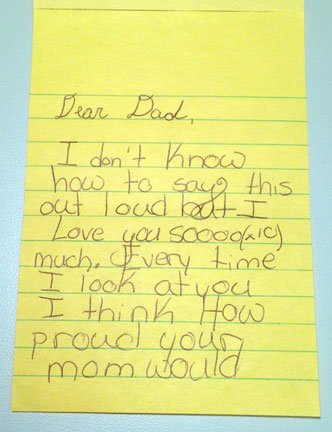 Dear Dad,
I don't know
how to say this
out loud but I
Love you soooo(x10)
much. Every time
I look at you
I think How
proud your
mom would